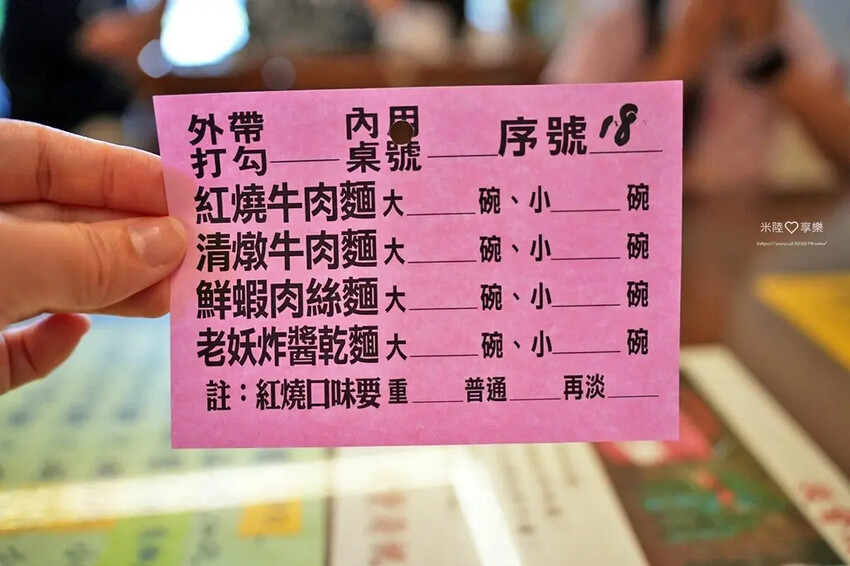 外帶打勾____ 內用桌號____ 序號 18
紅燒牛肉麵 大____碗、小____碗
清燉牛肉麵 大____碗、小____碗
鮮蝦肉絲麵 大____碗、小____碗
老妖炸醬乾麵 大____碗、小____碗
註：紅燒口味要 重____ 普通____ 再淡____
米陸♡享樂